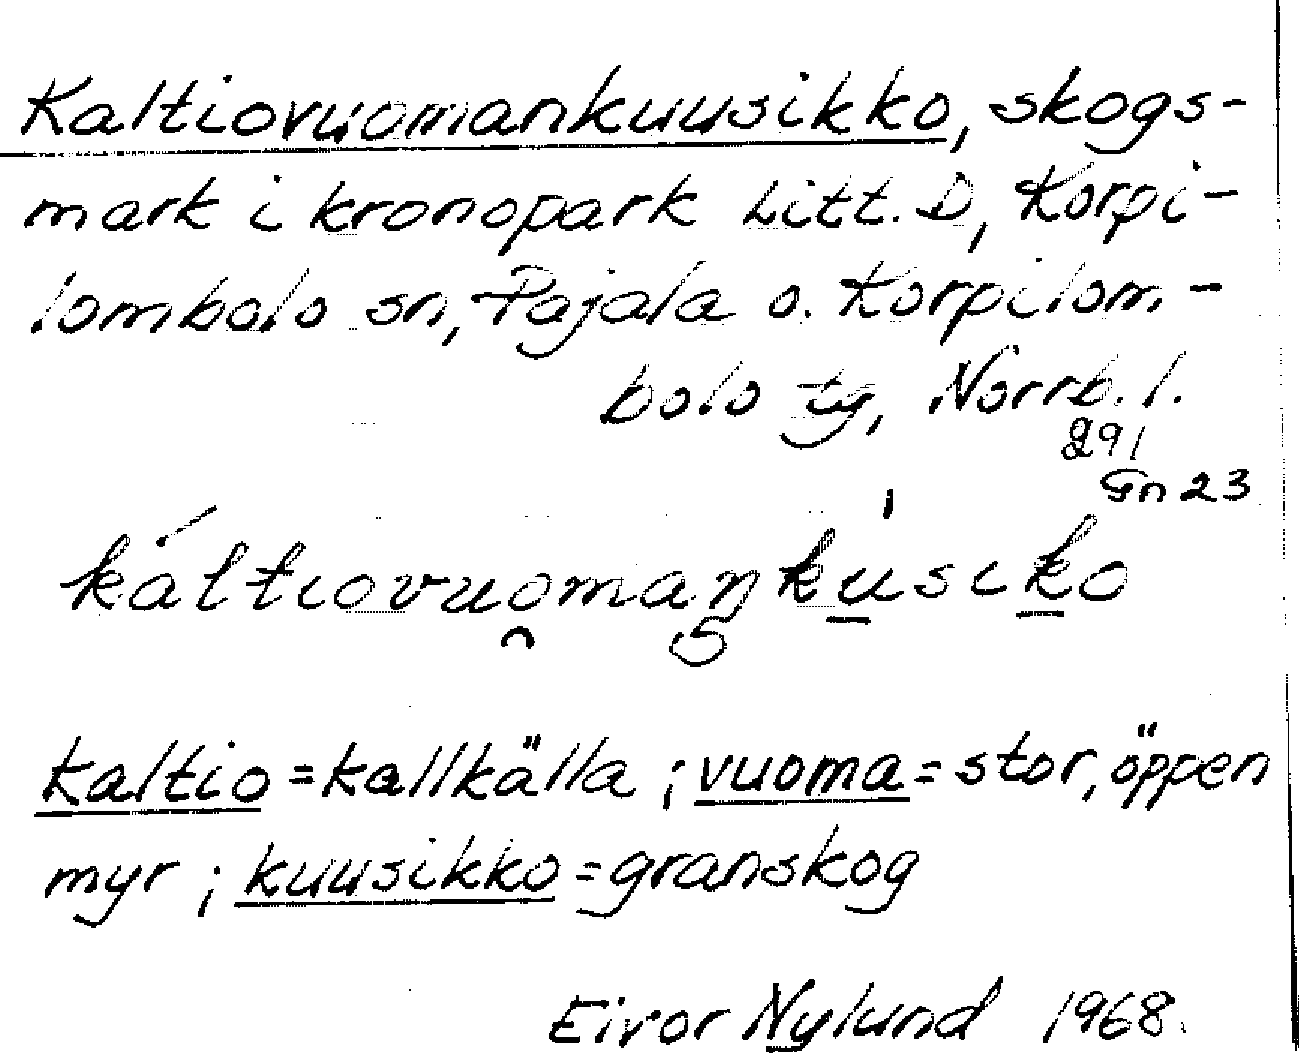 Kaltiovuomankuusikko, skogs-
mark i kronopark Litt. D, Korpi-
lombolo sn, Pajala o. Korpilom-
bolo tg, Norrb. l.
291
Gn 23
káltiovuomankúsiko
kaltio = kallkälla ; vuoma = stor, öppen
myr ; kuusikko = granskog
Eivor Nylund 1968.